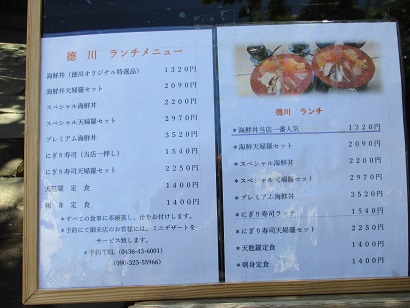 徳川 ランチメニュー
海鮮丼(徳川オリジナル特選品) 1320円
海鮮丼天婦羅セット 2090円
スペシャル海鮮丼 2200円
スペシャル天婦羅セット 2970円
プレミアム海鮮丼 3520円
にぎり寿司(当店一押し) 1540円
にぎり寿司天婦羅セット 2250円
天麩羅 定食 1400円
刺身 定食 1400円
*すべての食事に茶碗蒸し、汁をお付けします。
*予約にて御来店のお客様には、ミニデザートを
サービス致します。
*予約TEL (0436-43-6001)
(090-323-55966)
徳川 ランチ
*海鮮丼当店一番人気 1320円
*海鮮天婦羅セット 2090円
*スペシャル海鮮丼 2200円
*スペシャル天婦羅セット 2970円
*プレミアム海鮮丼 3520円
*にぎり寿司ランチ 1540円
*にぎり寿司天婦羅セット 2250円
*天麩羅定食 1400円
*刺身定食 1400円